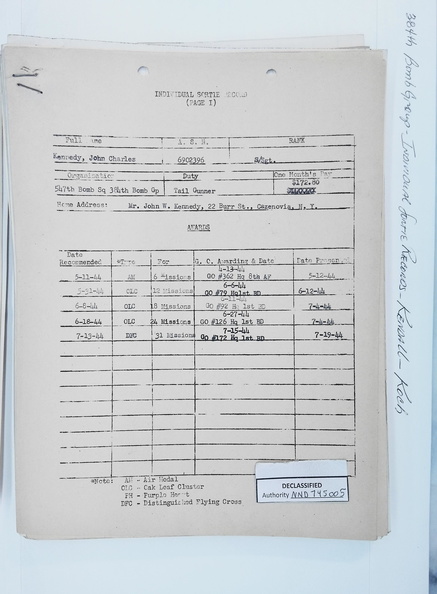 INDIVIDUAL SORTIE RECORD
(PAGE I)
Full Name A. S. N. RANK
Kennedy, John Charles 6902396 S/Sgt.
Organization Duty One Month's Pay
$172.80
547th Bomb Sq 384th Bomb Gp Tail Gunner
Home Address: Mr. John W. Kennedy, 22 Burr St., Cazenovia, N. Y.
AWARDS
Date Recommended *Type For G. O. Awarding & Date Date Presented
5-11-44 AM 6 Missions GO #362 Hq 8th AF 5-12-44
5-31-44 OLC 12 Missions 6-6-44 GO #79 Hq 1st BD 6-12-44
6-8-44 OLC 18 Missions GO #92 Hq 1st BD 7-4-44
6-18-44 OLC 24 Missions 6-27-44 GO #126 Hq 1st BD 7-4-44
7-13-44 DFC 31 Missions 7-15-44 GO #172 Hq 1st BD 7-19-44
*Note: AM - Air Medal
OLC - Oak Leaf Cluster
PH - Purple Heart
DFC - Distinguished Flying Cross
DECLASSIFIED
Authority NND 745005
384th Bomb Group - Individual Sortie Records - Kendall - Koch